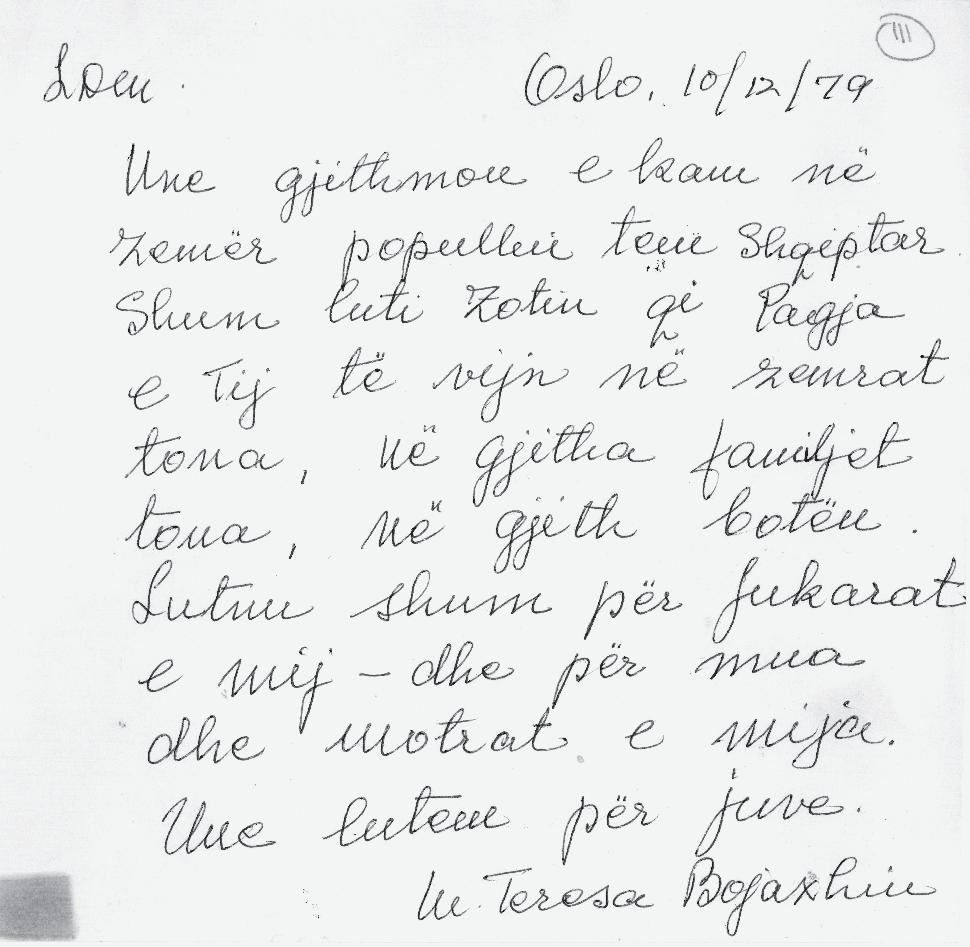 III
LDM Oslo, 10/12/79
Une gjithmon e kam në
zemër popullin tem Shqiptar.
Shum luti Zotin qi Paqja
e Tij të vijn në zemrat
tona, në gjitha familjet
tona, në gjith botën.
Lutnu shum për fukarat
e mij – dhe për mua
dhe motrat e mija.
Une lutem për juve.
M. Teresa Bojaxhiu